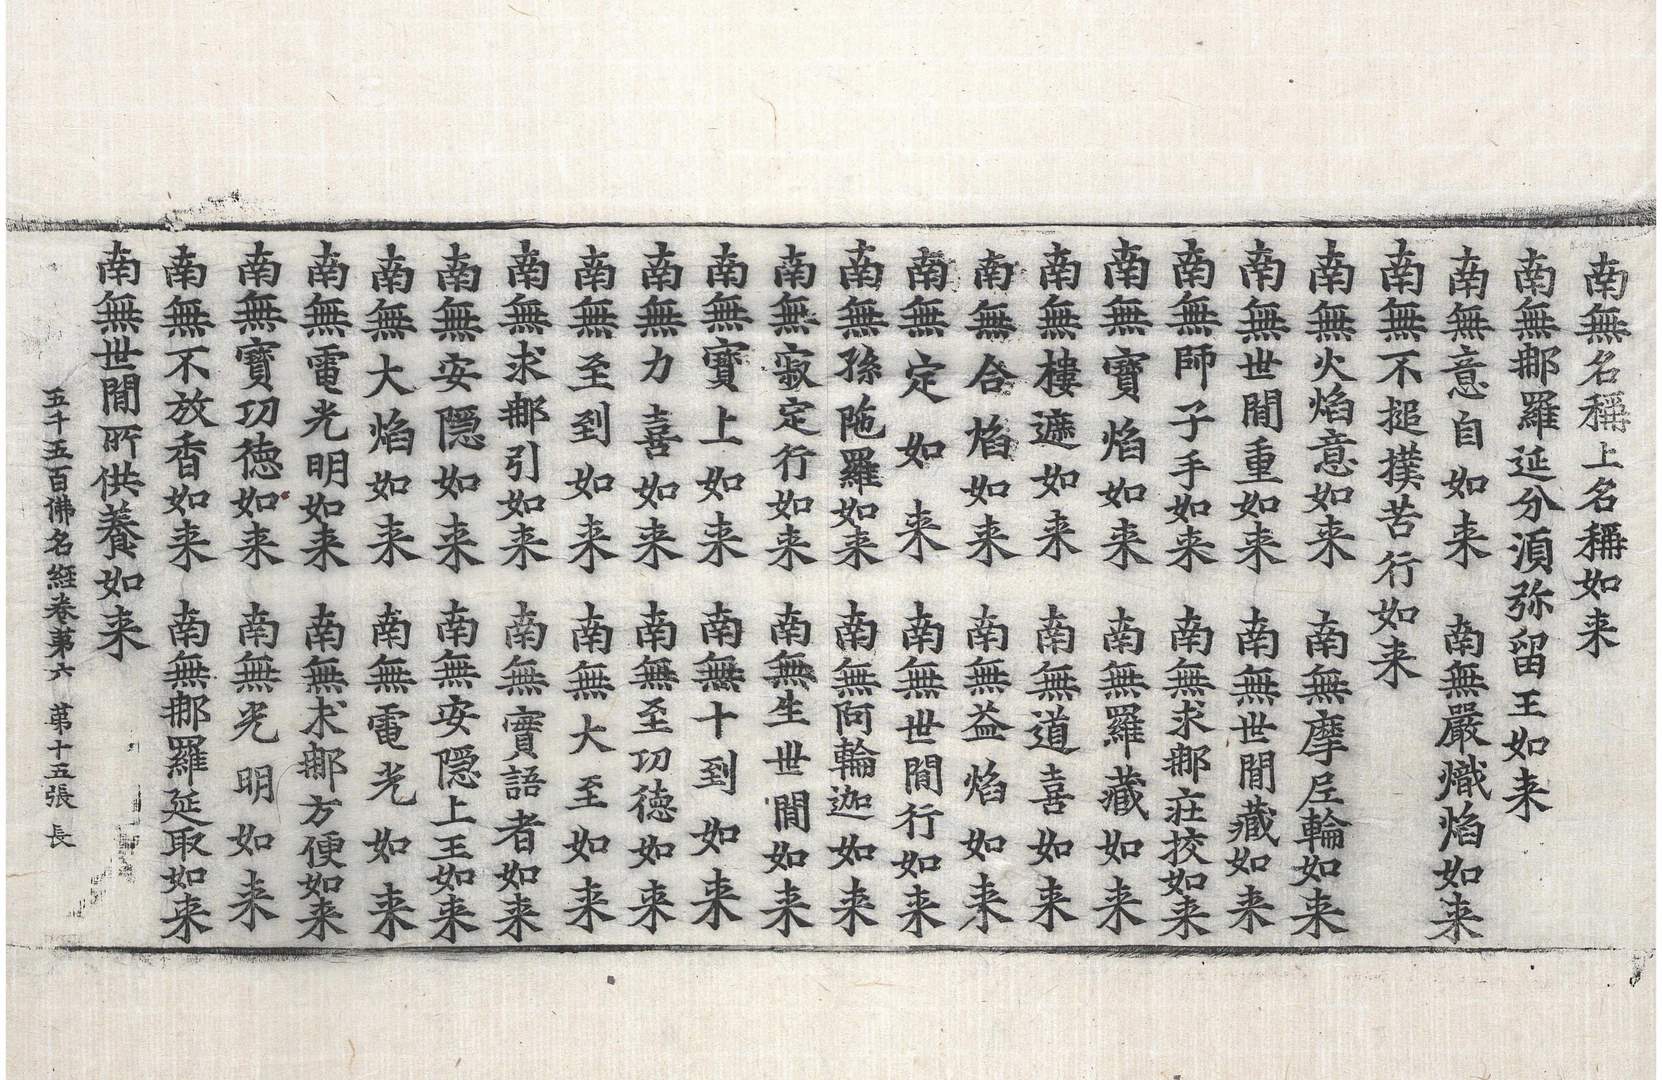 南無名稱上名稱如来
南無那羅延分湏弥留王如来
南無意自如来 南無嚴熾焰如来
南無不搥撲苦行如来
南無火焰意如来 南無摩尼輪如来
南無世閒重如来 南無世閒藏如来
南無師子手如来 南無求那莊挍如来
南無寶焰如来 南無羅藏如来
南無樓遮如来 南無道喜如来
南無合焰如来 南無益焰如来
南無定如来 南無世閒行如来
南無孫陁羅如来 南無阿輪迦如来
南無寂定行如来 南無生世閒如来
南無寶上如来 南無十到如来
南無力喜如来 南無至功徳如来
南無至到如来 南無大至如来
南無求那引如来 南無實語者如来
南無安隱如来 南無安隱上王如来
南無大焰如来 南無電光如来
南無電光明如来 南無求那方便如来
南無寶功徳如来 南無光明如来
南無不放香如来 南無那羅延取如来
南無世閒所供養如来
五千五百佛名経卷第六 第十五張 長